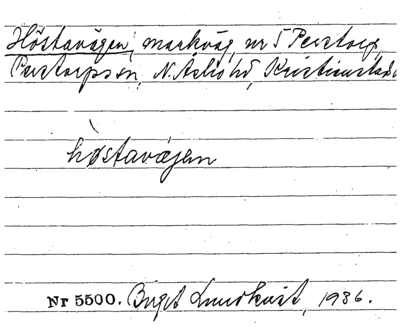 Höstavägen, markväg, nr 5 Perstorp,
Perstorps sn, N. Åsbo hd, Kristianstads
hòstavägen
Nr 5500. Birgit Lundkvist, 1936.